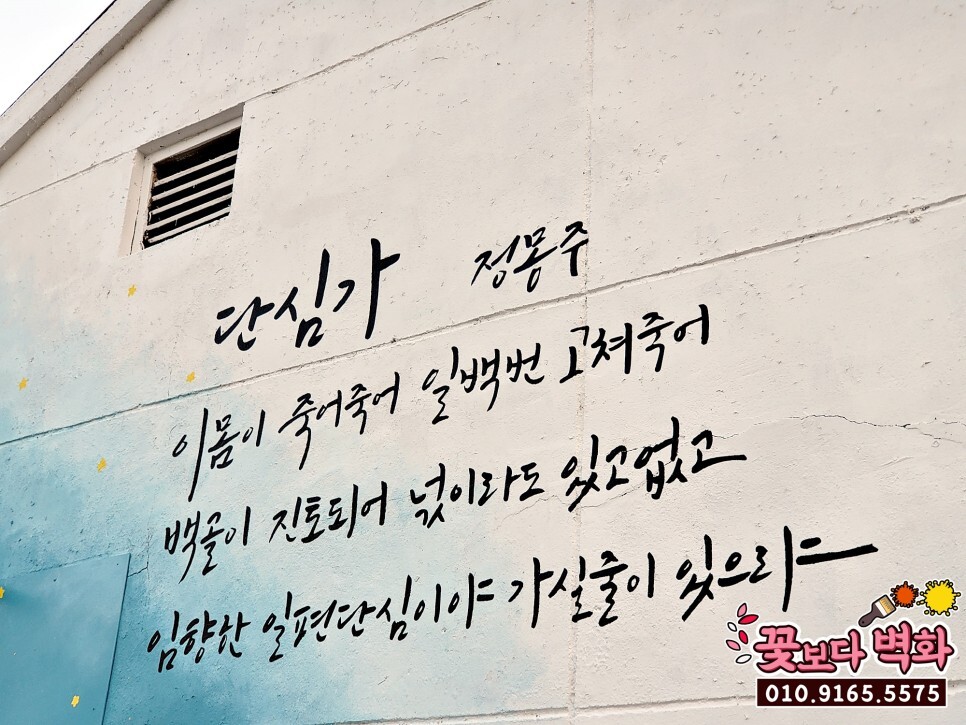 단심가 정몽주
이몸이 죽어죽어 일백번 고쳐죽어
백골이 진토되어 넋이라도 있고없고
임향한 일편단심이야 가실줄이 있으랴
꽃보다 벽화
010.9165.5575